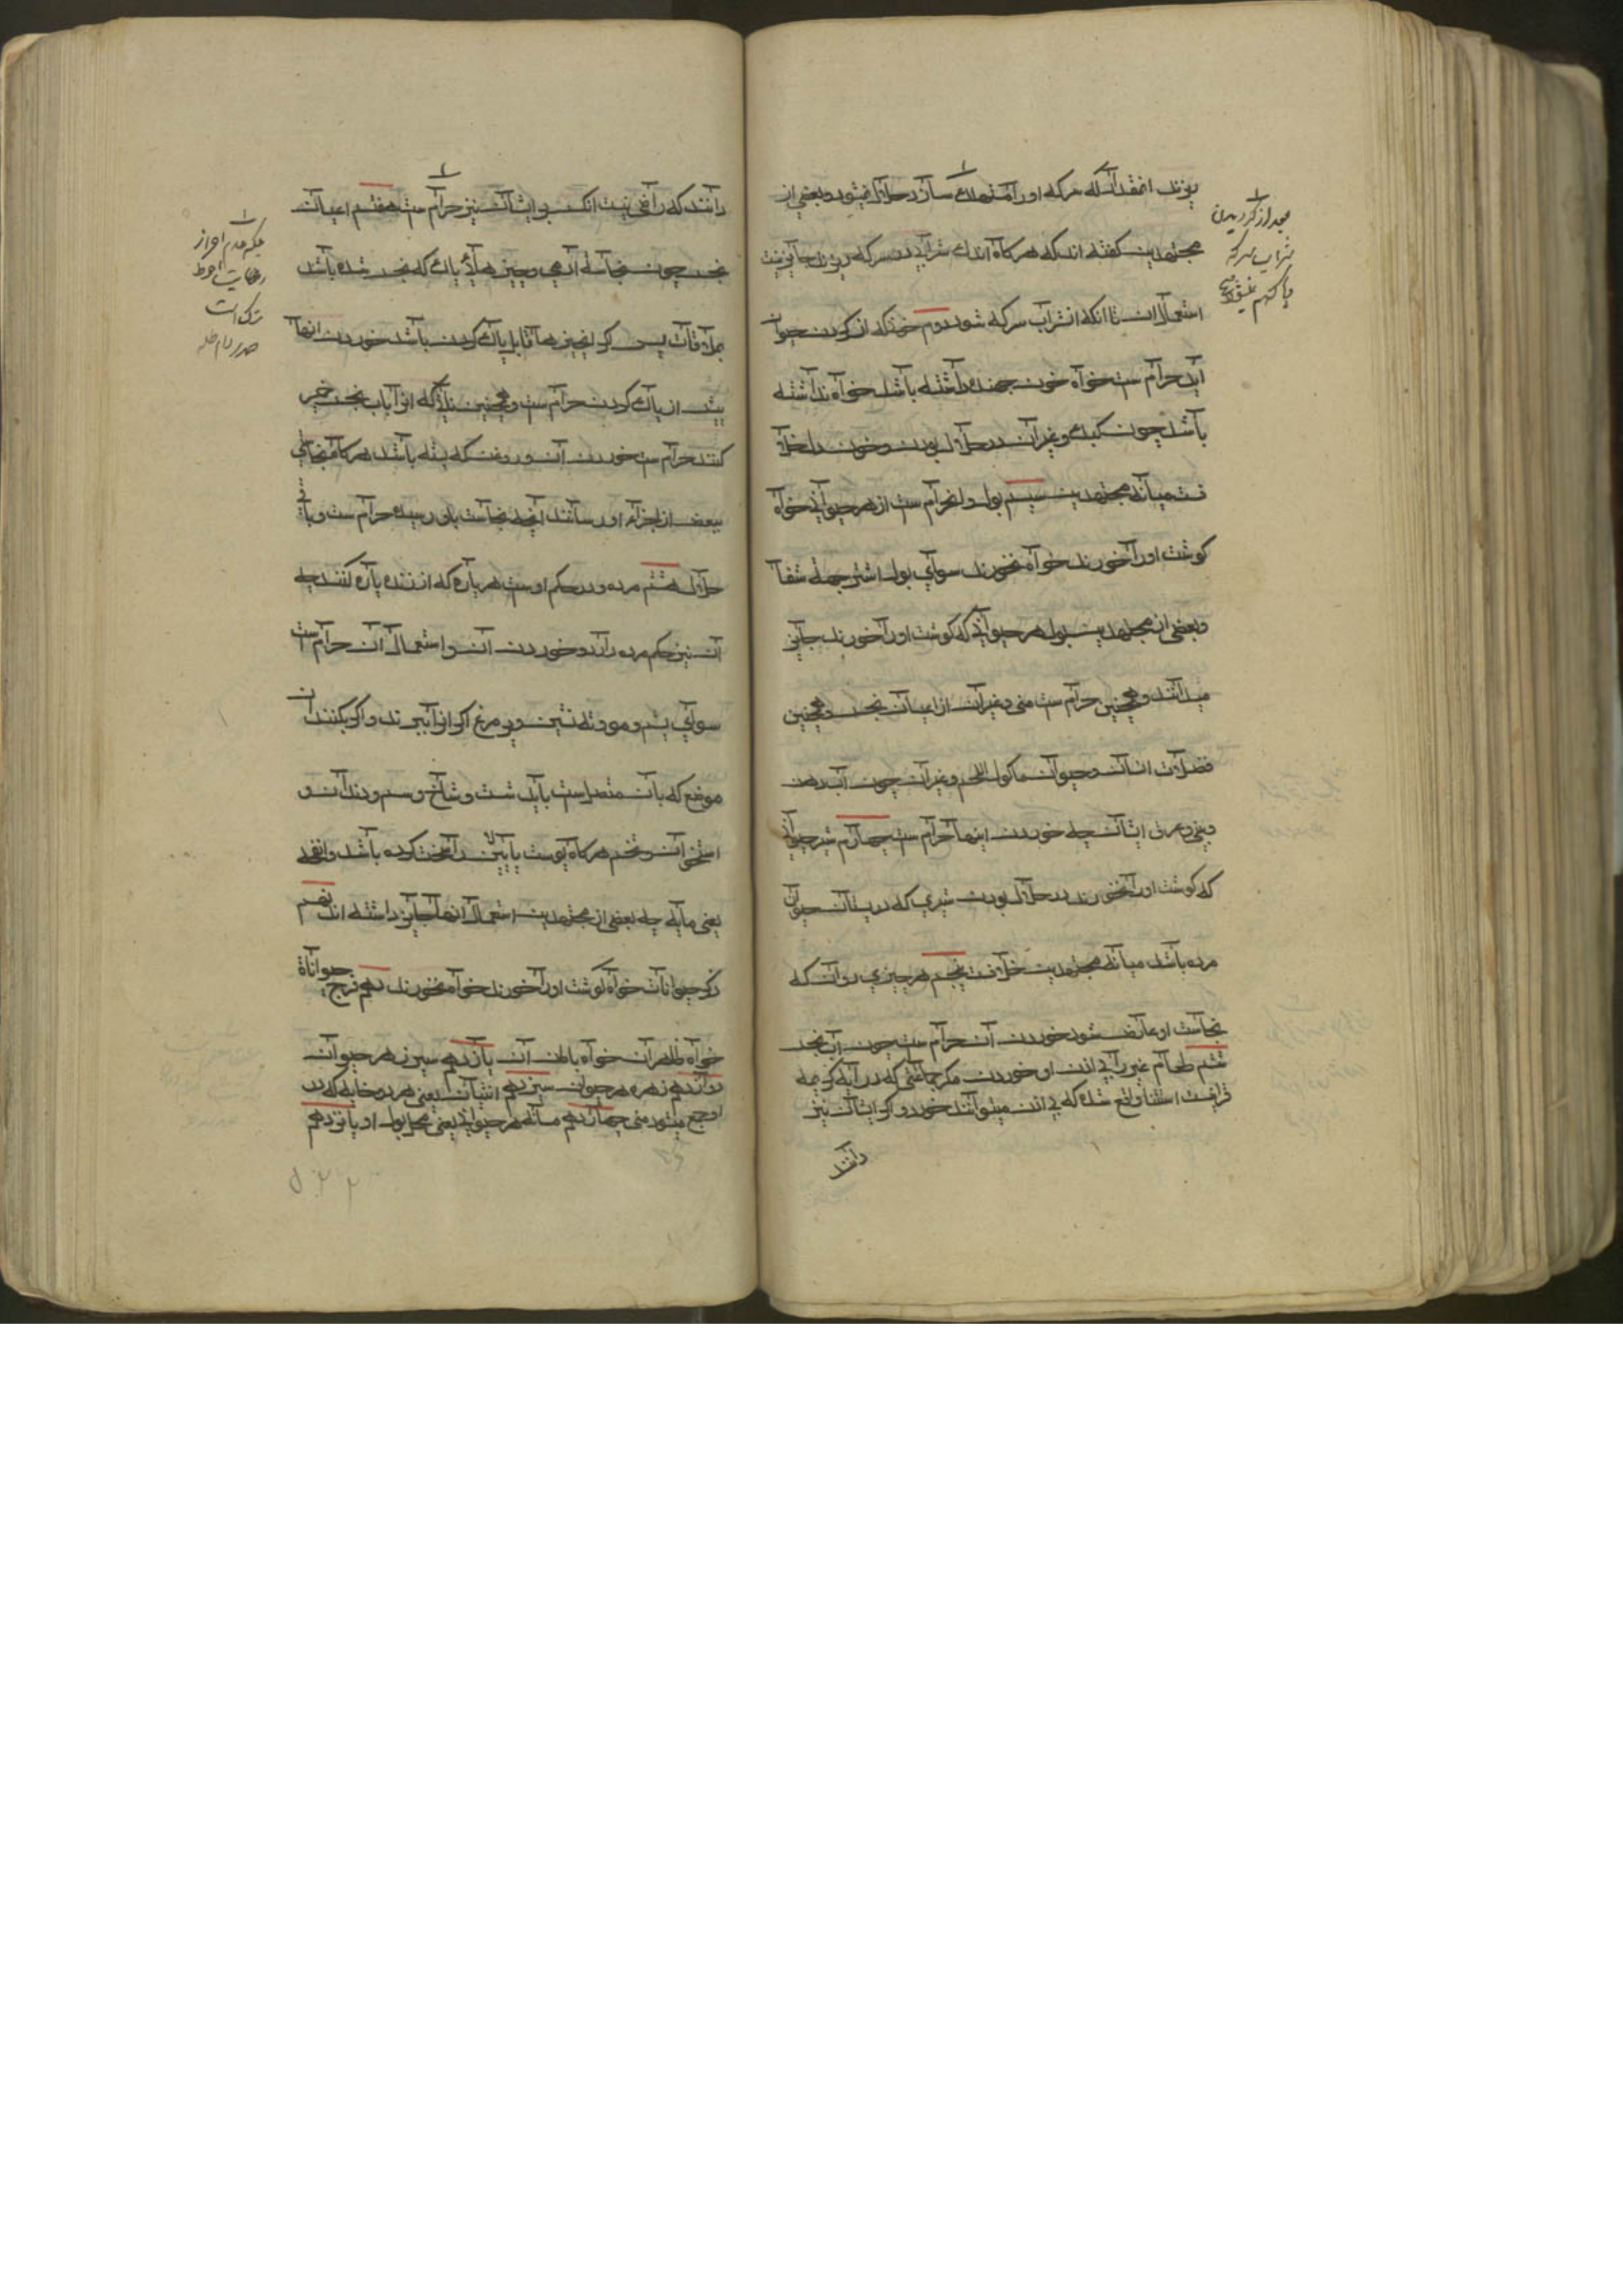 ریزند انقدر که سرکه او را مستهلک سازد حلال نمیشود و بعضی از
مجتهدین گفته اند که هرگاه اندک شرابی در سرکه ریزند جایز نیست
استعمال ان تا انکه ان شراب سرکه شود دوم خونی که از کردن حیوان
آید حرام ست خواه خون جهنده داشته باشد خواه نداشته
باشد چون کبک و غیر آن در حلال بودن و خون دل خلا
فست میانه مجتهدین سیم بول و آن حرام ست از هر حیوانی خواه
گوشت او را خورند خواه نخورند سوای بول اشتر جهة شفا
و بعضی از مجتهدین بول هر حیوانی که گوشت او را خورند جایز
میدانند و همچنین حرام ست منی و غیر آن از اعیان نجس و همچنین
فضلات انسان و حیوان ماکول اللحم و غیر آن چون آب دهن
و بینی و عرق ایشان چه خوردن اینها حرام ست چهارم شیر حیوانی
که گوشت او را نخورند در حلال بودن شیری که در پستان حیوان
مرده باشد میانه مجتهدین خلافست پنجم هر چیزی روان که
نجاست او عارض شود خوردن آن حرام ست چون آب نجس
ششم طعام غیر را بی اذن او خوردن مگر جماعتی که در آیه کریمه
قرآنیست استثنا واقع شده که بی اذن میتوانند خورد و اگر ایشان نیز
دانند
بعد از کردیدن
شراب سرکه
پاک
دانند که راضی نیست انکس بر ایشان نیز حرام ست هفتم اعیان
نجس چون نجاسة آدمی و چیزهای پاک که نجس شده باشد
بملاقات پس اگر این چیزها قابل پاک کردن باشد خوردن انها
پیش از پاک کردن حرام ست و همچنین نانی که انرا باب نجس خمیر
کنند حرام ست خوردن آن و روغن که بسته باشد هرگاه نجاستی
ببعض از اجزاء او رسانند آنچه نجاست باو رسیده حرام ست و باقی
حلال هشتم مرده و در حکم اوست هر پاره که از زنده پاره کنند چه
آن نیز حکم مرده دارد و خوردن آن و استعمال آن حرام ست
سوای پشم و مو و ته نشین و پر مرغ اگر از آن ببرند و اگر بکنند ان
موضع که بان متصل است باید شست و شاخ و سم و دندان و
استخوان و تخم هرگاه پوست بالایین را سخت کرده باشد و انفحه
یعنی مایه چه بعضی از مجتهدین استعمال انها جایز داشته اند نهم
ذکر حیوانات خواه گوشت او را خورند خواه نخورند دهم فرج حیواناة
خواه ظاهر آن خواه باطن آن یازدهم سپرز هر حیوان
دوازدهم زهره هر حیوان سیزدهم انثیان یعنی هر دو خایه که در
او جمع میشود منی چهاردهم مثانه هر حیوانی یعنی محل بول او پانزدهم
بلکه عدم جواز
رعایت احوط
ترک است
صدر دام ظله